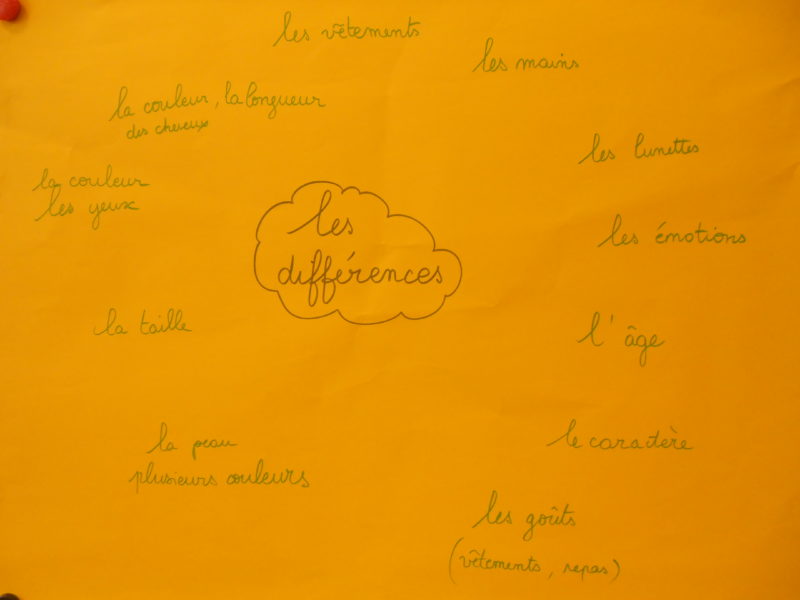 les vêtements
les mains
la couleur, la longueur
des cheveux
les lunettes
la couleur
les yeux
les différences
les émotions
la taille
l'âge
la peau
plusieurs couleurs
le caractère
les goûts
(vêtements, repas)